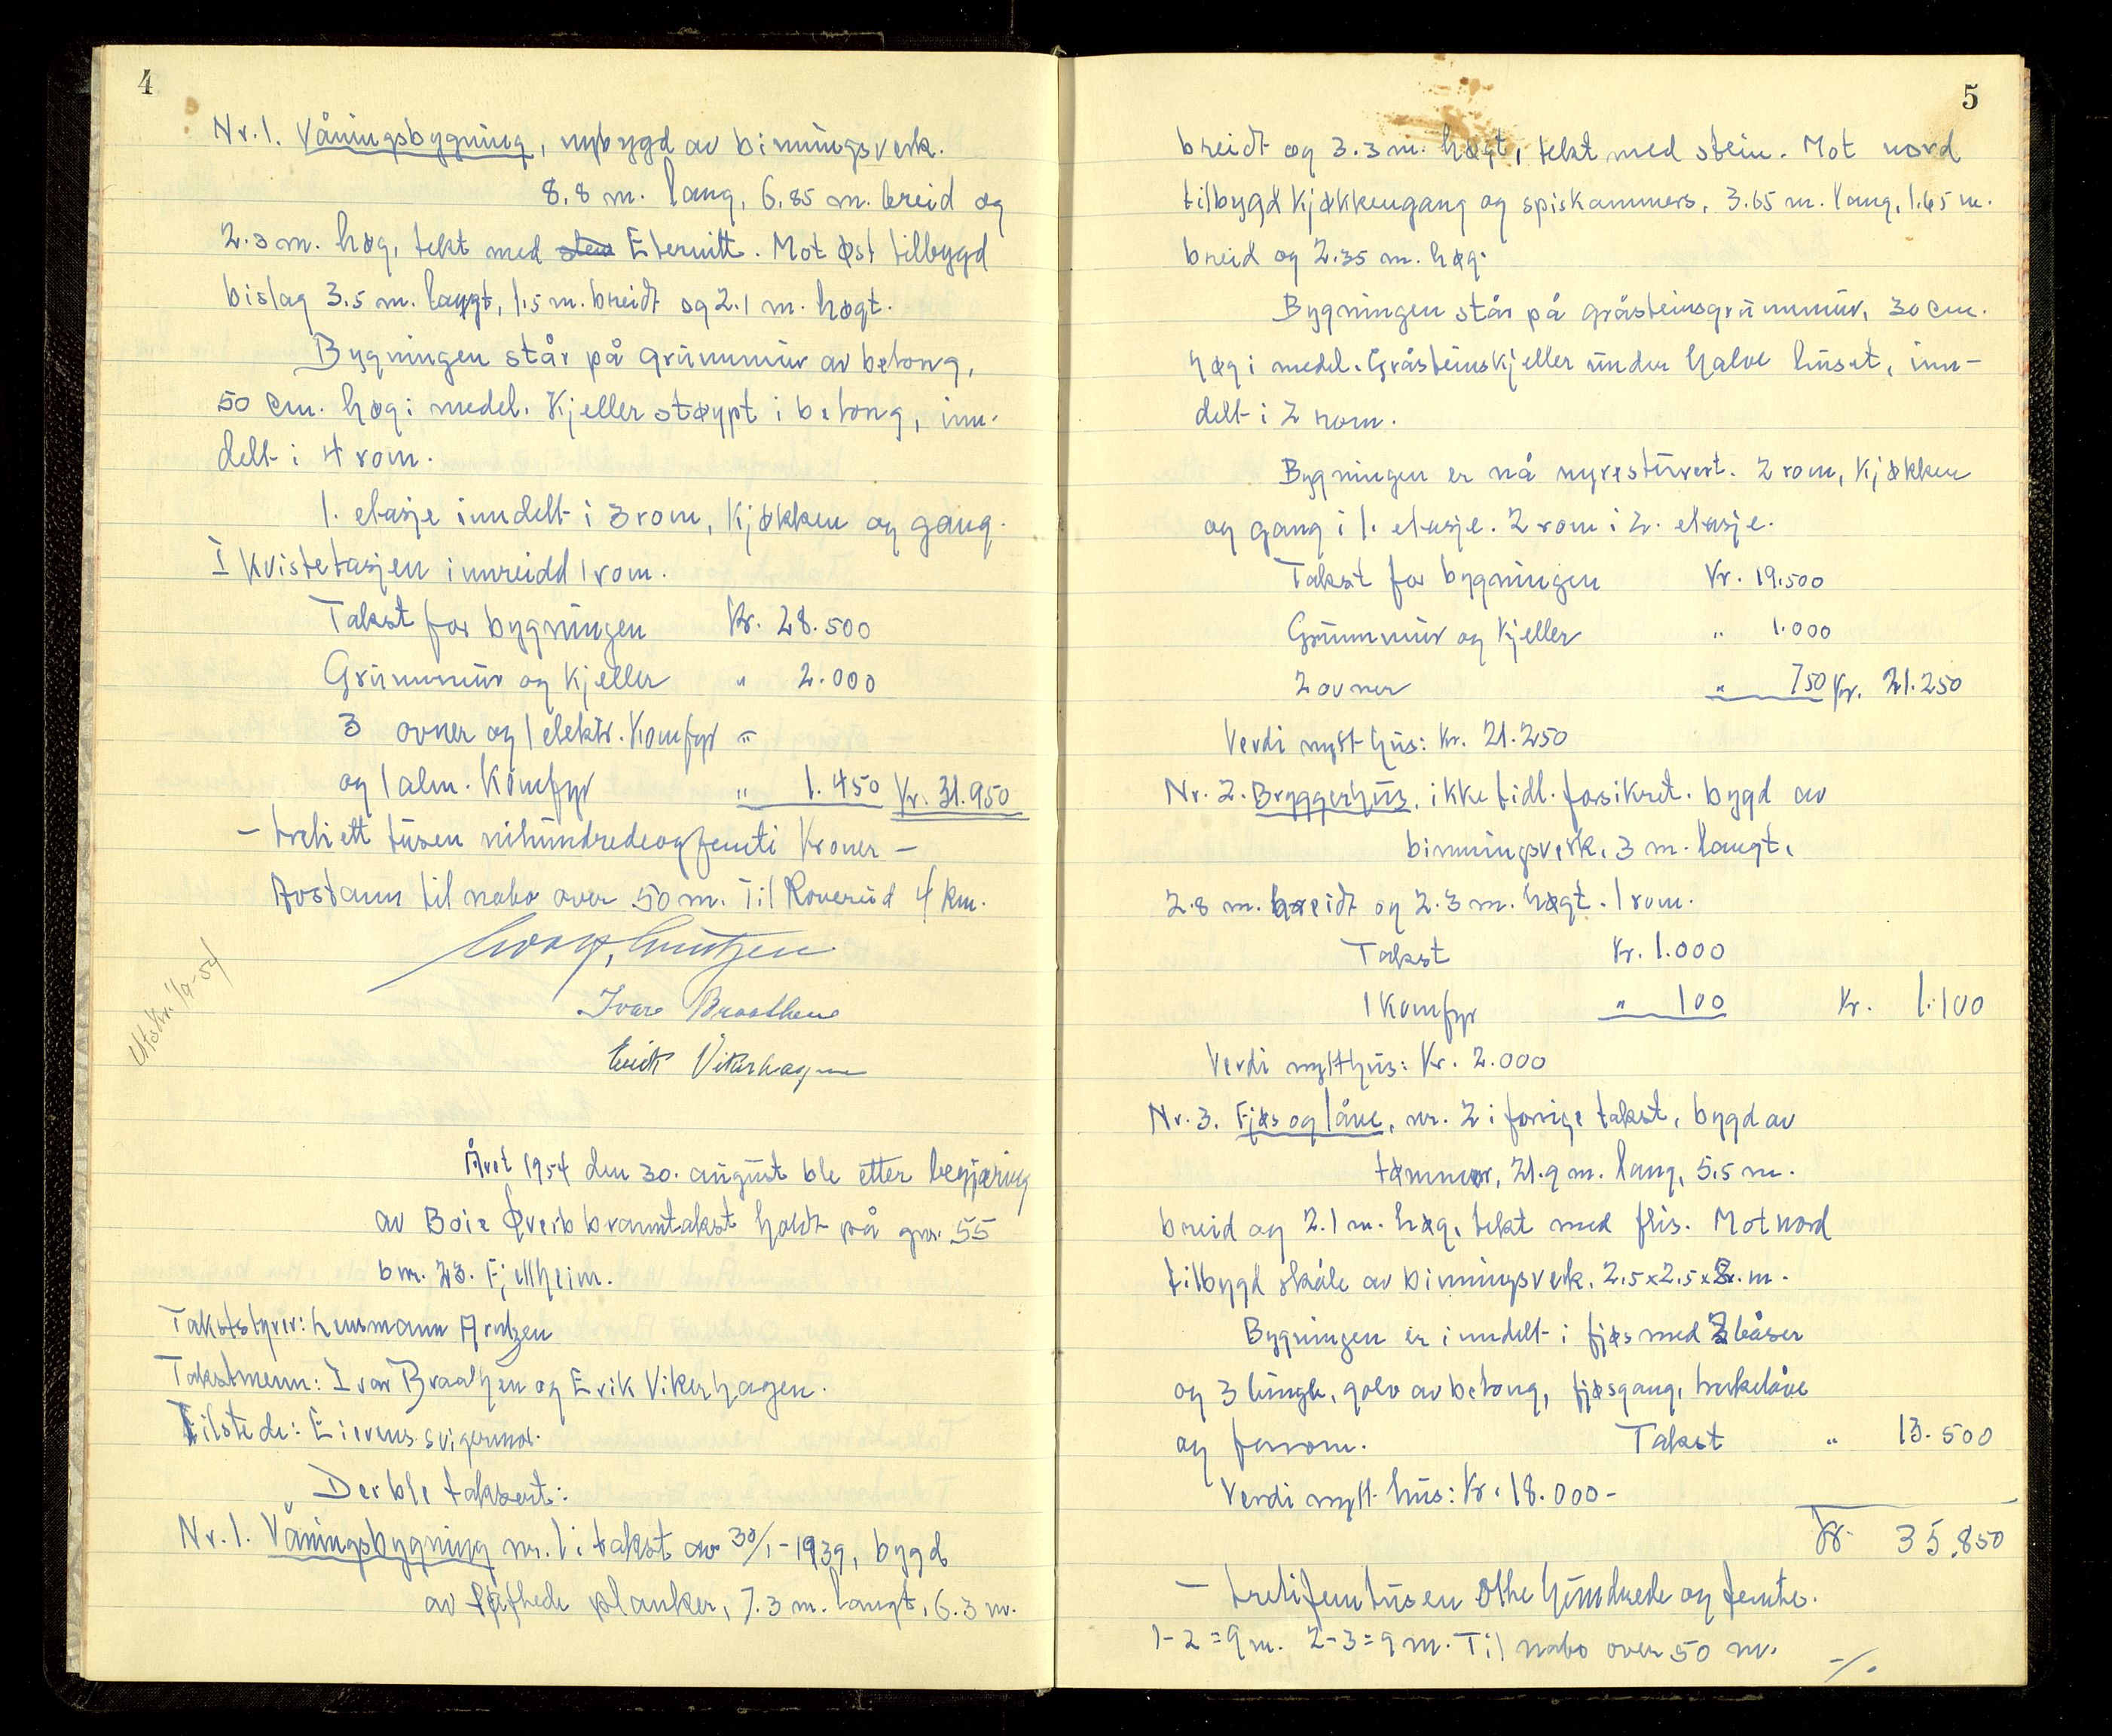 4
Nr. 1. Våningsbygning, nybygd av binningsverk.
8.8 m. lang, 6.85 m. breid og
2.3 m. høg, tekt med sten Eternitt. Mot øst tilbygd
bislag 3.5 m. langt, 1.5 m. breidt og 2.1 m. høgt.
Bygningen står på grunnmur av betong,
50 cm. høg i medel. Kjeller støypt i betong, inn-
delt i 4 rom.
1. etasje inndelt i 3 rom, kjøkken og gang.
I kvistetasjen innreidd 1 rom.
Takst for bygningen Kr. 28.500
Grunnmur og kjeller " 2.000
3 ovner og 1 elektr. komfyr "
og 1 alm. komfyr " 1.450 Kr. 31.950
- tretiett tusen nihundredeogfemti kroner -
Avstann til nabo over 50 m. Til Roverud 4 km.
Ivar Braathen
Erik Vikerhagen
Utskr. 1/9-54
Året 1954 den 30. august ble etter begjæring
av Boie Øverby branntakst holdt på gnr. 55
bnr. 23. Fjellheim.
Takststyrer: Lensmann Arntzen
Takstmenn: Ivar Braathen og Erik Vikerhagen.
Tilstede: Eierens svigermor.
Der ble taksert:
Nr. 1. Våningsbygning nr. 1 i takst av 30/1-1939, bygd
av planker, 7.3 m. langt, 6.3 m.
5
breidt og 3.3 m. høgt, tekt med stein. Mot nord
tilbygd kjøkkengang og spiskammers, 3.65 m. lang, 1.65 m.
breid og 2.35 m. høg.
Bygningen står på gråsteinsgrunnmur, 30 cm.
høg i medel. Gråsteinskjeller under halve huset, inn-
delt i 2 rom.
Bygningen er nå nyrestuvert. 2 rom, kjøkken
og gang i 1. etasje. 2 rom i 2. etasje.
Takst for bygningen Kr. 19.500
Grunnmur og kjeller " 1.000
2 ovner " 750 Kr. 21.250
Verdi nytt hus: Kr. 21.250
Nr. 2. Bryggerhus, ikke tidl. forsikret. bygd av
binningsverk, 3 m. langt,
2.8 m. breidt og 2.3 m. høgt. 1 rom.
Takst Kr. 1.000
1 komfyr " 100 Kr. 1.100
Verdi nytt hus: Kr. 2.000
Nr. 3. Fjøs og låve, nr. 2 i forrige takst, bygd av
tømmer, 21.9 m. lang, 5.5 m.
breid og 2.1 m. høg, tekt med flis. Mot nord
tilbygd skåle av binningsverk, 2.5 x 2.5 x 2. m.
Bygningen er inndelt i fjøs med 3 båser
og 3 binger, golv av betong, fjøsgang, treskelåve
og forrom. Takst " 13.500
Verdi nytt hus: Kr. 18.000-
Kr. 35.850
- tretifemtusen åttehundrede og femti.
1-2 = 9 m. 2-3 = 9 m. Til nabo over 50 m.
-/.